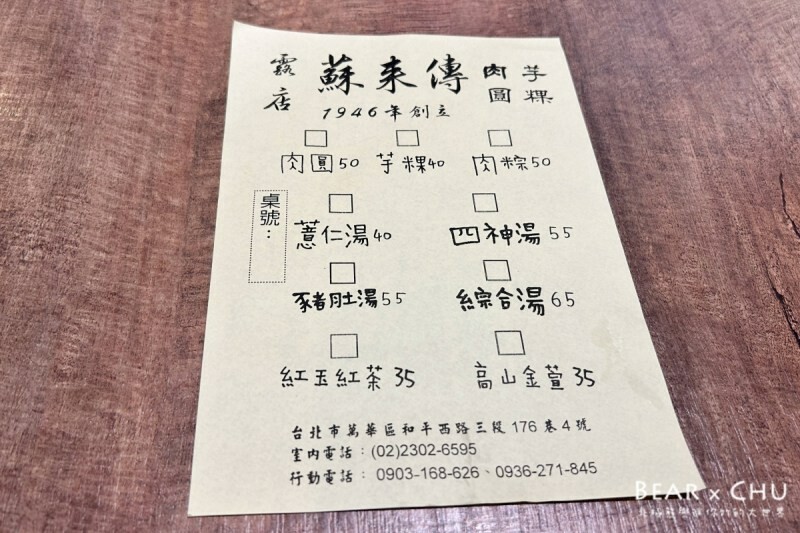 露店 蘇来傳 肉圓 芋粿
1946年創立
肉圓50 芋粿40 肉粽50
桌號：
薏仁湯40 四神湯55
豬肚湯55 綜合湯65
紅玉紅茶35 高山金萱35
台北市萬華區和平西路三段176巷4號
室內電話：(02)2302-6595
行動電話：0903-168-626、0936-271-845
BEAR x CHU